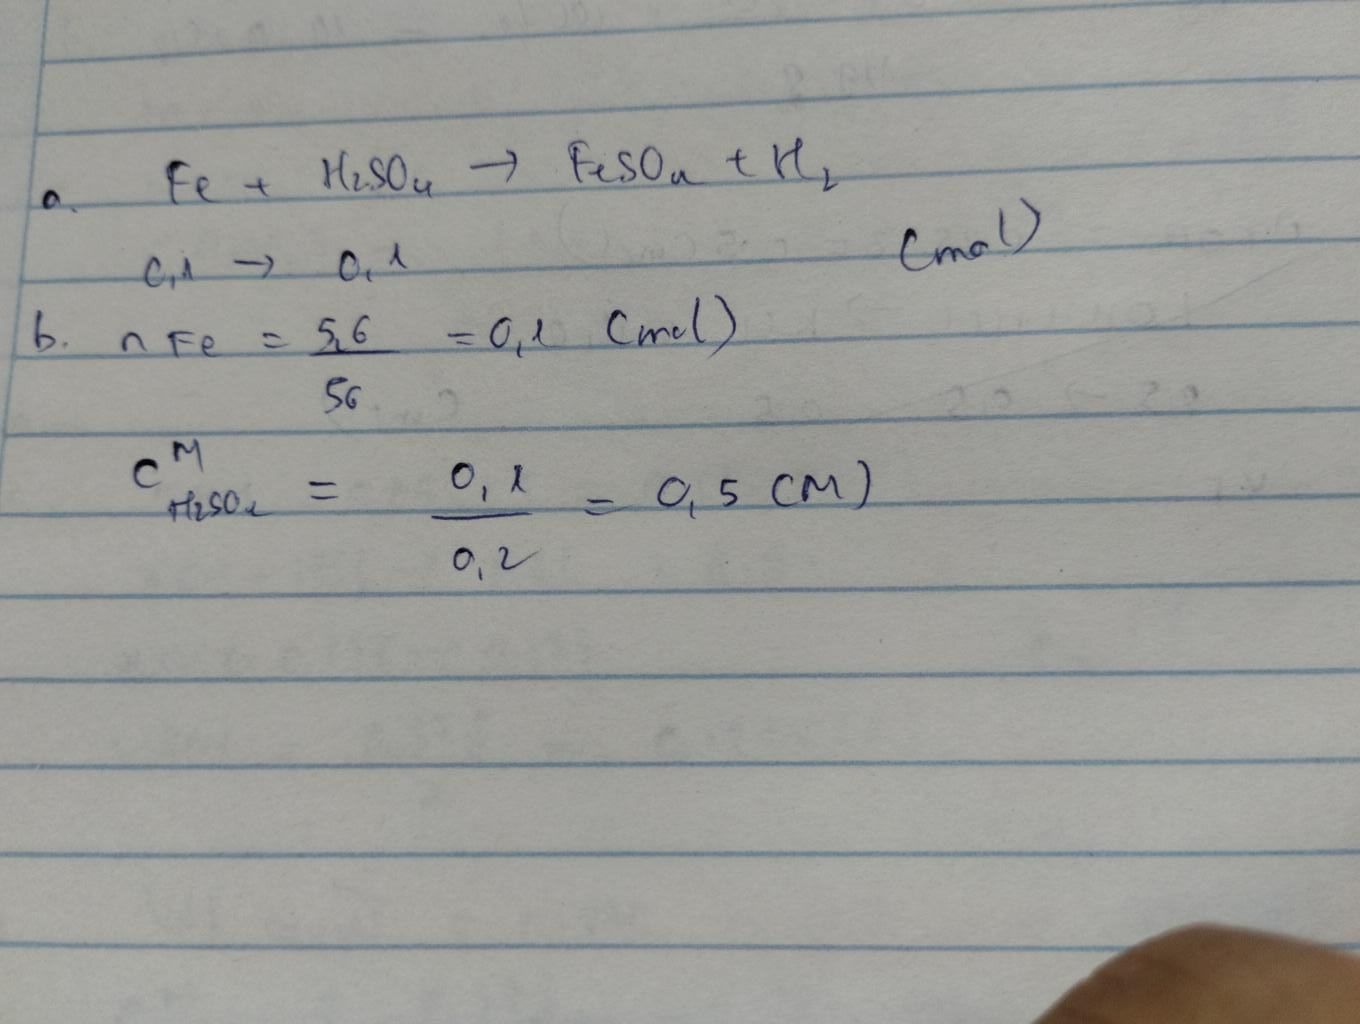 a. Fe + H₂SO₄ → FeSO₄ + H₂
0,1 → 0,1 (mol)
b. n Fe = 5,6 / 56 = 0,1 (mol)
C M H₂SO₄ = 0,1 / 0,2 = 0,5 (M)